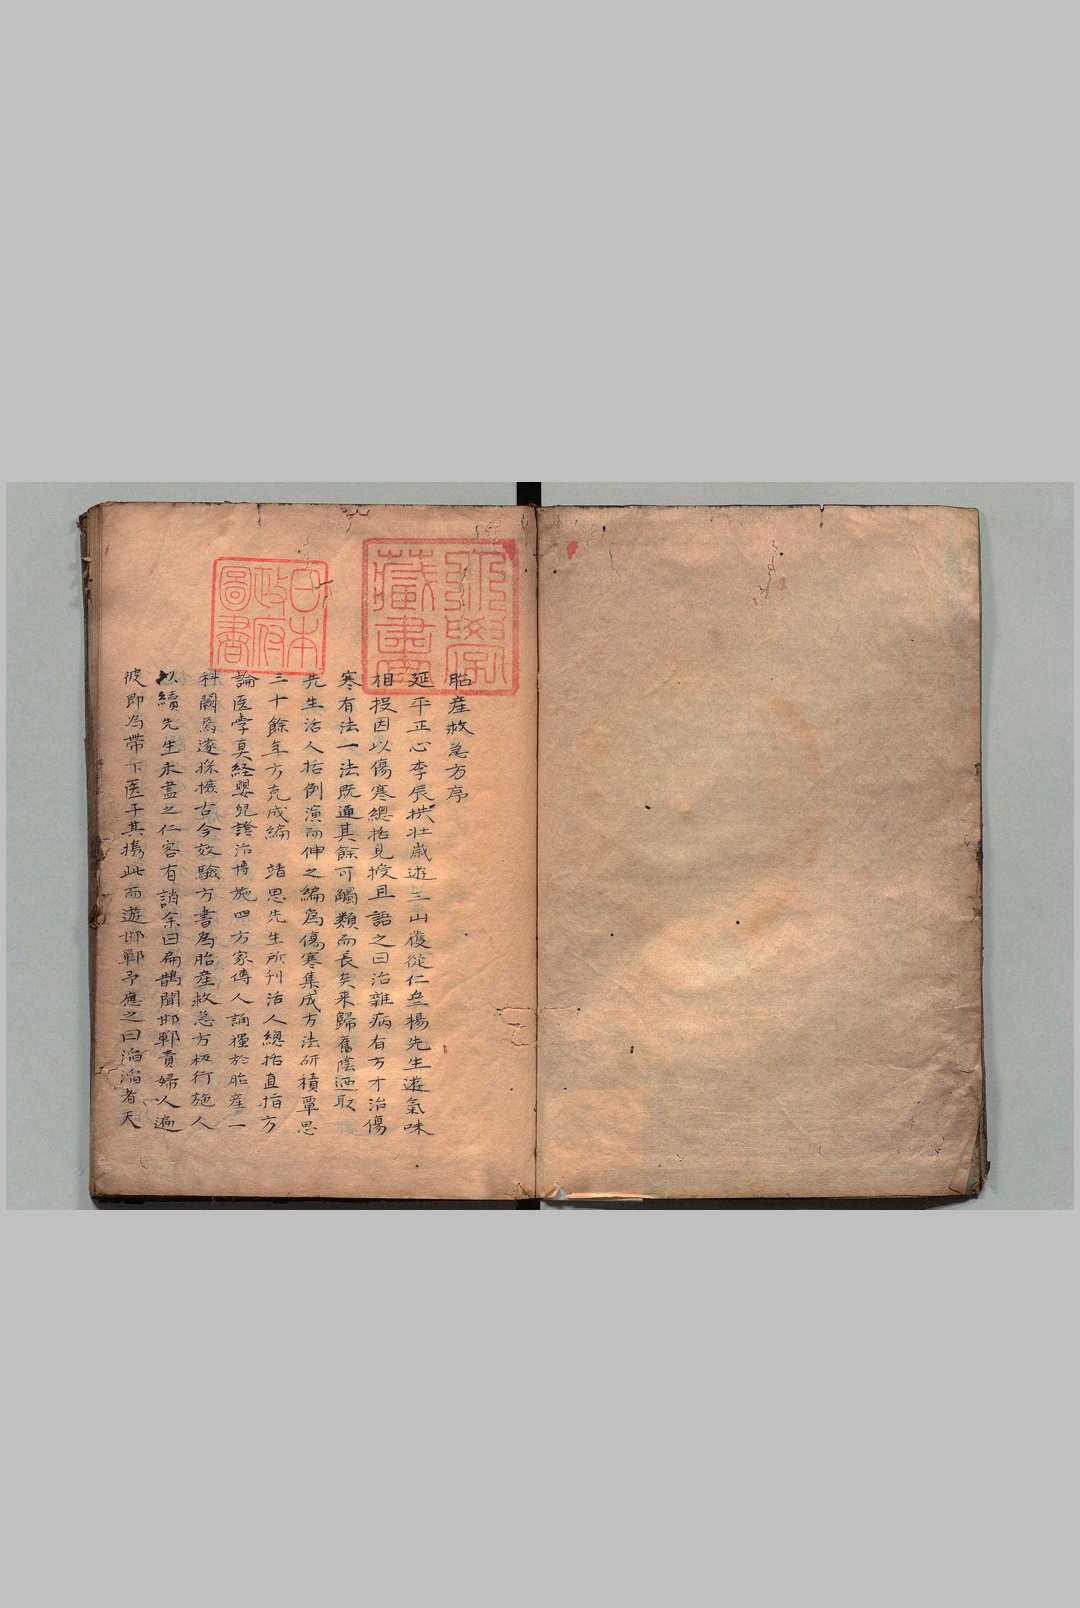 胎産救急方序
延平正心李辰拱壮歳遊三山復従仁斎楊先生遊氣味
相投因以傷寒總括見授且語之曰治雜病有方才治傷
寒有法一法既通其餘可觸類而長矣来歸舊陰
先生活人括例演而伸之編為傷寒集成方法研積覃思
三十餘年方克成編 靖思先生所刊活人總括直指方
論医学真経嬰児證治博施四方家傳人誦獨於胎産一
科闕焉遂採摭古今效驗方書為胎産救急方板行施人
以續先生未盡之仁客有誚余曰扁鵲聞邯鄲貴婦人遍
彼即為帶下医子其擕此而遊邯鄲予應之曰滔滔者天
日本
政府
圖書
醫學
藏書